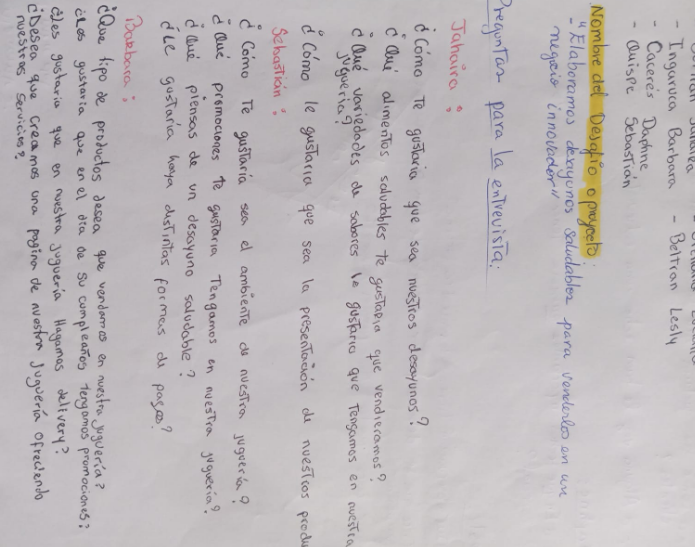 - Ingaruca Barbara - Beltran Lesly
- Caceres Daphne,
- Quispe Sebastian
Nombre del Desafio o proyecto:
- "Elaboramos desayunos saludables para venderlos en un
negocio innovador"
Preguntas para la entrevista:
Jahaira:
¿Cómo te gustaria que sea nuestros desayunos?
¿Qué alimentos saludables te gustaria que vendieramos?
¿Qué variedades de sabores le gustaria que Tengamos en nuestra
juguería?
¿Cómo le gustaria que sea la presentación de nuestros produ
Sebastián:
¿Cómo te gustaría sea el ambiente de nuestra juguería?
¿Qué promociones te gustaria Tengamos en nuestra juguería?
¿Qué piensas de un desayuno saludable?
¿Le gustaría haya distintas formas de pagos?
Barbara:
¿Que tipo de productos desea que vendamos en nuestra juguería?
¿Les gustaria que en el día de su cumpleaños tengamos promociones?
¿Les gustaria que en nuestra juguería Hagamos delivery?
¿Desea que creamos una pagina de nuestra juguería ofreciendo
nuestros servicios?